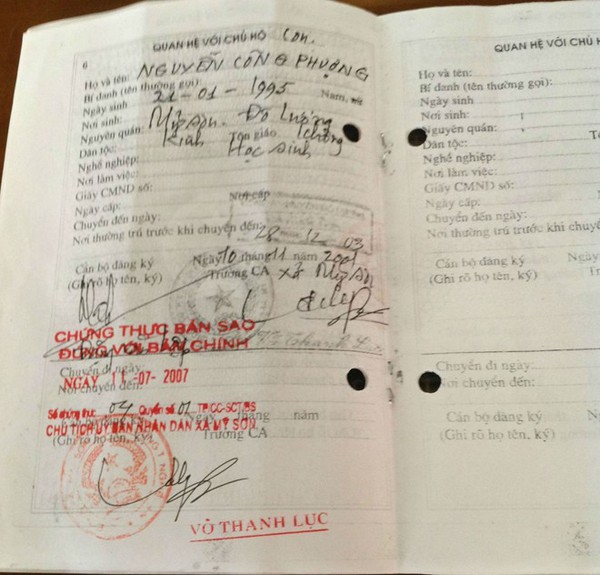 6 QUAN HỆ VỚI CHỦ HỘ Con.
Họ và tên: NGUYỄN CÔNG PHƯỢNG
Bí danh (tên thường gọi):
Ngày sinh 21-01-1995 Nam,
Nơi sinh:
Nguyên quán: Mỹ Sơn - Đô Lương
Dân tộc: Kinh Tôn giáo không
Nghề nghiệp: Học sinh
Nơi làm việc:
Giấy CMND số:
Ngày cấp: Nơi cấp
Chuyển đến ngày:
Nơi thường trú trước khi chuyển đến:
28 12 03
Ngày 10 tháng 11 năm 2001
Cán bộ đăng ký Trưởng CA xã Mỹ Sơn
(Ghi rõ họ tên, ký)
CHỨNG THỰC BẢN SAO
ĐÚNG VỚI BẢN CHÍNH
Chuyển đi ngày:
NGÀY 11-07-2007
Nơi chuyển đến:
Số chứng thực 04 Quyển số 01 TP/CC-SCT/BS
Ngày tháng năm
CHỦ TỊCH ỦY BAN NHÂN DÂN XÃ MỸ SƠN.
Cán bộ đăng ký
(Ghi rõ họ tên, ký) Trưởng CA
VÕ THANH LỤC
QUAN HỆ VỚI CHỦ H
Họ và tên:
Bí danh (tên thường gọi):
Ngày sinh
Nơi sinh:
Nguyên quán:
Dân tộc: T
Nghề nghiệp:
Nơi làm việc:
Giấy CMND số:
Ngày cấp:
Chuyển đến ngày:
Nơi thường trú trước khi chuyển đ
Ngày
Cán bộ đăng ký
(Ghi rõ họ tên, ký)
Chuyển đi ngày:
Nơi chuyển đến:
Cán bộ đăng ký Ngày
(Ghi rõ họ tên, ký)